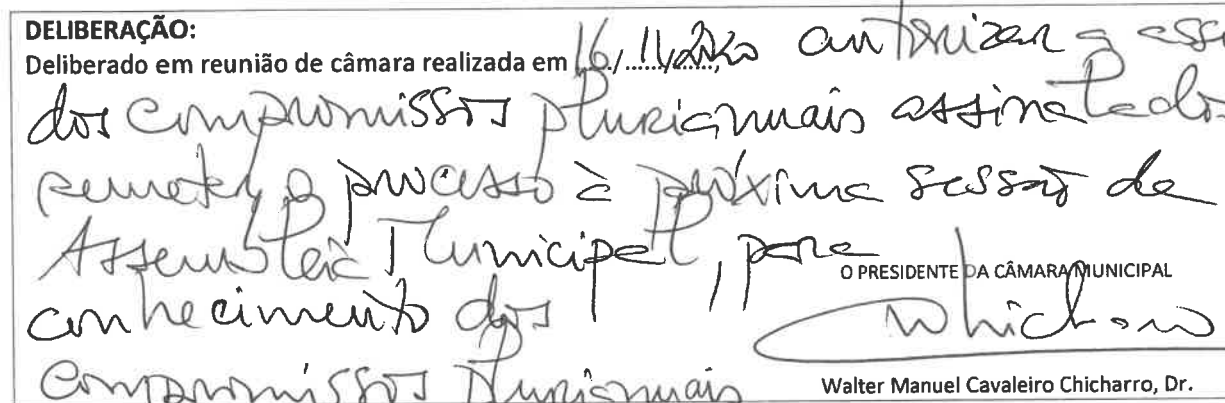 DELIBERAÇÃO:
Deliberado em reunião de câmara realizada em 16/11/2020 autorizar a
dos compromissos plurianuais assinalados
remeter o processo à próxima sessão da
Assembleia Municipal, para
O PRESIDENTE DA CÂMARA MUNICIPAL
conhecimento dos
compromissos plurianuais
Walter Manuel Cavaleiro Chicharro, Dr.